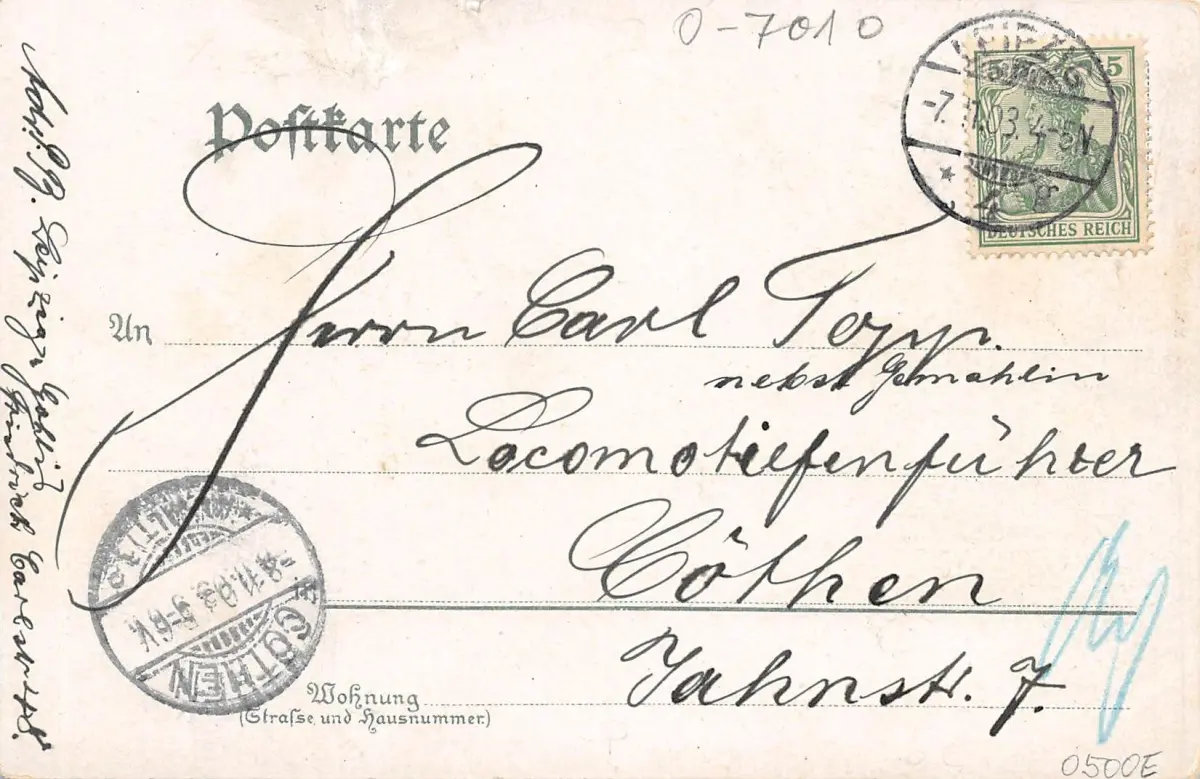 O-7010
Postkarte
LEIPZIG
-7.11.03.4-5N
* 4 *
5
DEUTSCHES REICH
An Herrn Carl Topp.
nebst Gemahlin
Locomotiefenführer
Cöthen
Jahnstr. 7.
Wohnung
(Strasse und Hausnummer.)
* CÖTHEN
-8.11.03.5-6V.
(ANHALT) 1
Leipzig-Gohlis
0500E